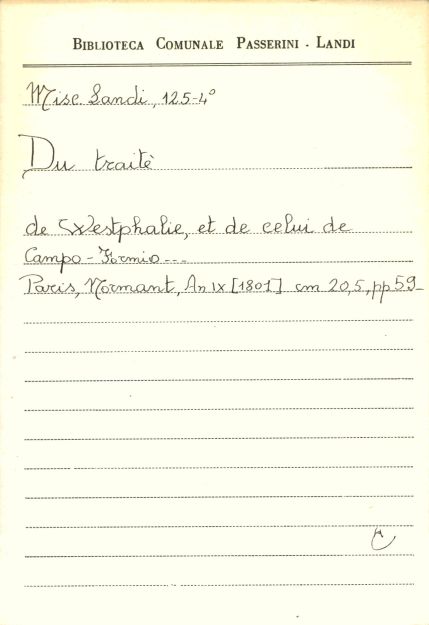 BIBLIOTECA COMUNALE PASSERINI - LANDI
Misc. Landi, 125-4°
Du traitè
de Westphalie, et de celui de
Campo-Formio---
Paris, Normant, An IX [1801] cm 20,5, pp 59_